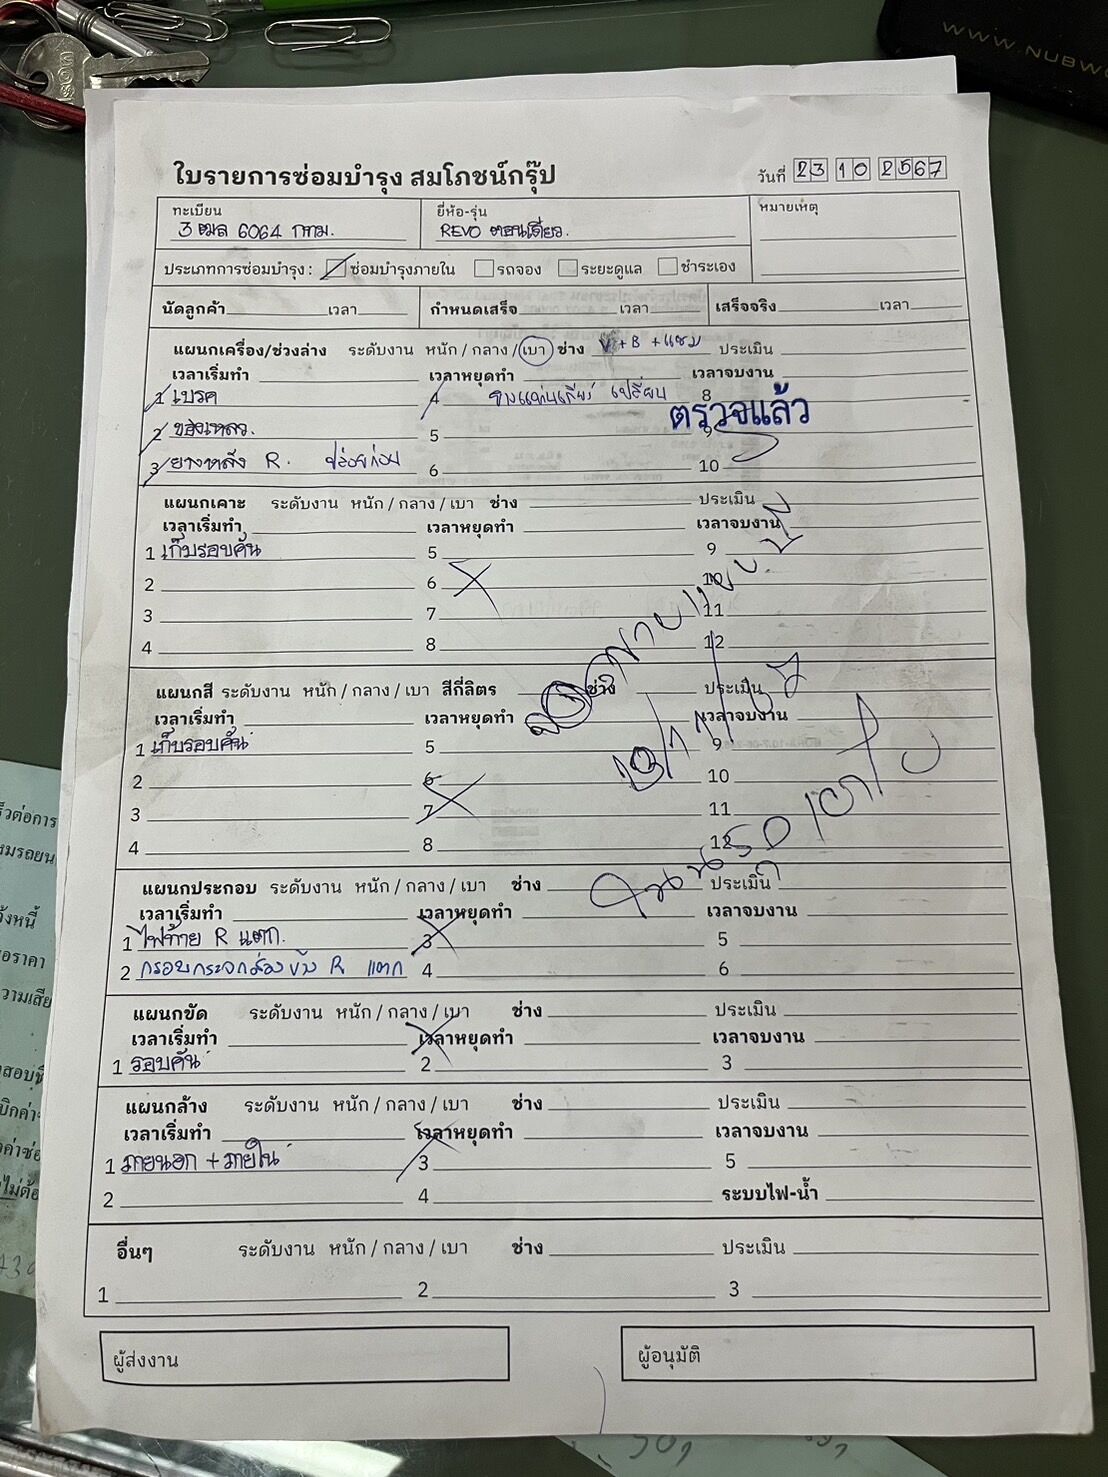 WWW.NUBWO
ใบรายการซ่อมบำรุง สมโภชน์กรุ๊ป
วันที่ 23 10 2567
ทะเบียน
3 ฒล 6064 กทม.
ยี่ห้อ-รุ่น
REVO ตอนเดียว.
หมายเหตุ
ประเภทการซ่อมบำรุง : ซ่อมบำรุงภายใน รถจอง ระยะดูแล ชำระเอง
นัดลูกค้า เวลา กำหนดเสร็จ เวลา เสร็จจริง เวลา
แผนกเครื่อง/ช่วงล่าง ระดับงาน หนัก / กลาง / เบา ช่าง + B + แชม ประเมิน
เวลาเริ่มทำ เวลาหยุดทำ เวลาจบงาน
1 เบรค 4 ยางแท่นเกียร์ เปลี่ยน 8
ตรวจแล้ว
2 ของเหลว. 5 9
3 ยางหลัง R. ปล่อยก่อน 6 10
แผนกเคาะ ระดับงาน หนัก / กลาง / เบา ช่าง ประเมิน
เวลาเริ่มทำ เวลาหยุดทำ เวลาจบงาน
1 เก็บรอบคัน 5 9
2 6 10
3 7 11
4 8 12
แผนกสี ระดับงาน หนัก / กลาง / เบา สีกี่ลิตร ช่าง ประเมิน
เวลาเริ่มทำ เวลาหยุดทำ เวลาจบงาน
1 เก็บรอบคัน 5 9
2 6 10
3 7 11
4 8 12
แผนกประกอบ ระดับงาน หนัก / กลาง / เบา ช่าง ประเมิน
เวลาเริ่มทำ เวลาหยุดทำ เวลาจบงาน
1 ไฟท้าย R แตก. 3 5
2 กรอบกระจกมองข้าง R แตก 4 6
แผนกขัด ระดับงาน หนัก / กลาง / เบา ช่าง ประเมิน
เวลาเริ่มทำ เวลาหยุดทำ เวลาจบงาน
1 รอบคัน 2 3
แผนกล้าง ระดับงาน หนัก / กลาง / เบา ช่าง ประเมิน
เวลาเริ่มทำ เวลาหยุดทำ เวลาจบงาน
1 ภายนอก + ภายใน 3 5
2 4 ระบบไฟ-น้ำ
อื่นๆ ระดับงาน หนัก / กลาง / เบา ช่าง ประเมิน
1 2 3
ผู้ส่งงาน
ผู้อนุมัติ